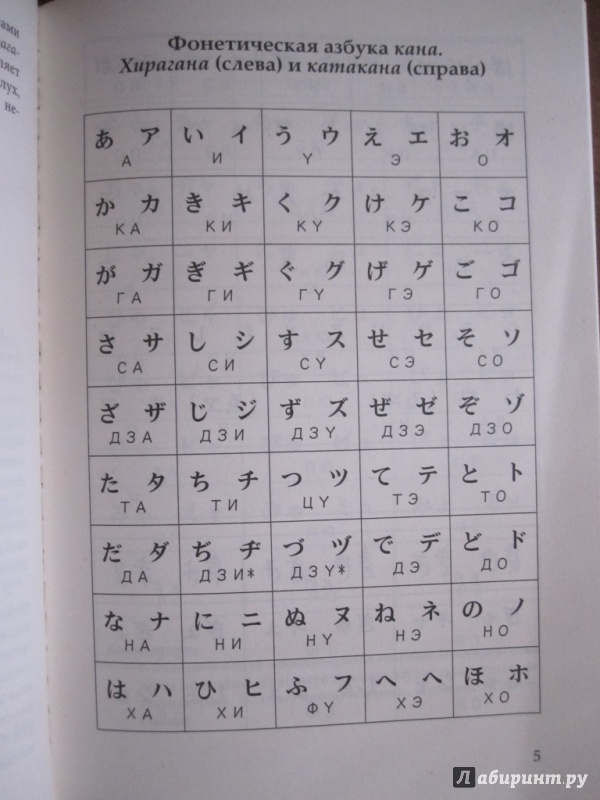 ами
ага-
ляет
лух,
не-
Фонетическая азбука кана.
Хирагана (слева) и катакана (справа)
あ ア い イ う ウ え エ お オ
А И У Э О
か カ き キ く ク け ケ こ コ
КА КИ КУ КЭ КО
が ガ ぎ ギ ぐ グ げ ゲ ご ゴ
ГА ГИ ГУ ГЭ ГО
さ サ し シ す ス せ セ そ ソ
СА СИ СУ СЭ СО
ざ ザ じ ジ ず ズ ぜ ゼ ぞ ゾ
ДЗА ДЗИ ДЗУ ДЗЭ ДЗО
た タ ち チ つ ツ て テ と ト
ТА ТИ ЦУ ТЭ ТО
だ ダ ぢ ヂ づ ヅ で デ ど ド
ДА ДЗИ* ДЗУ* ДЭ ДО
な ナ に ニ ぬ ヌ ね ネ の ノ
НА НИ НУ НЭ НО
は ハ ひ ヒ ふ フ へ ヘ ほ ホ
ХА ХИ ФУ ХЭ ХО
5
лабиринт.ру